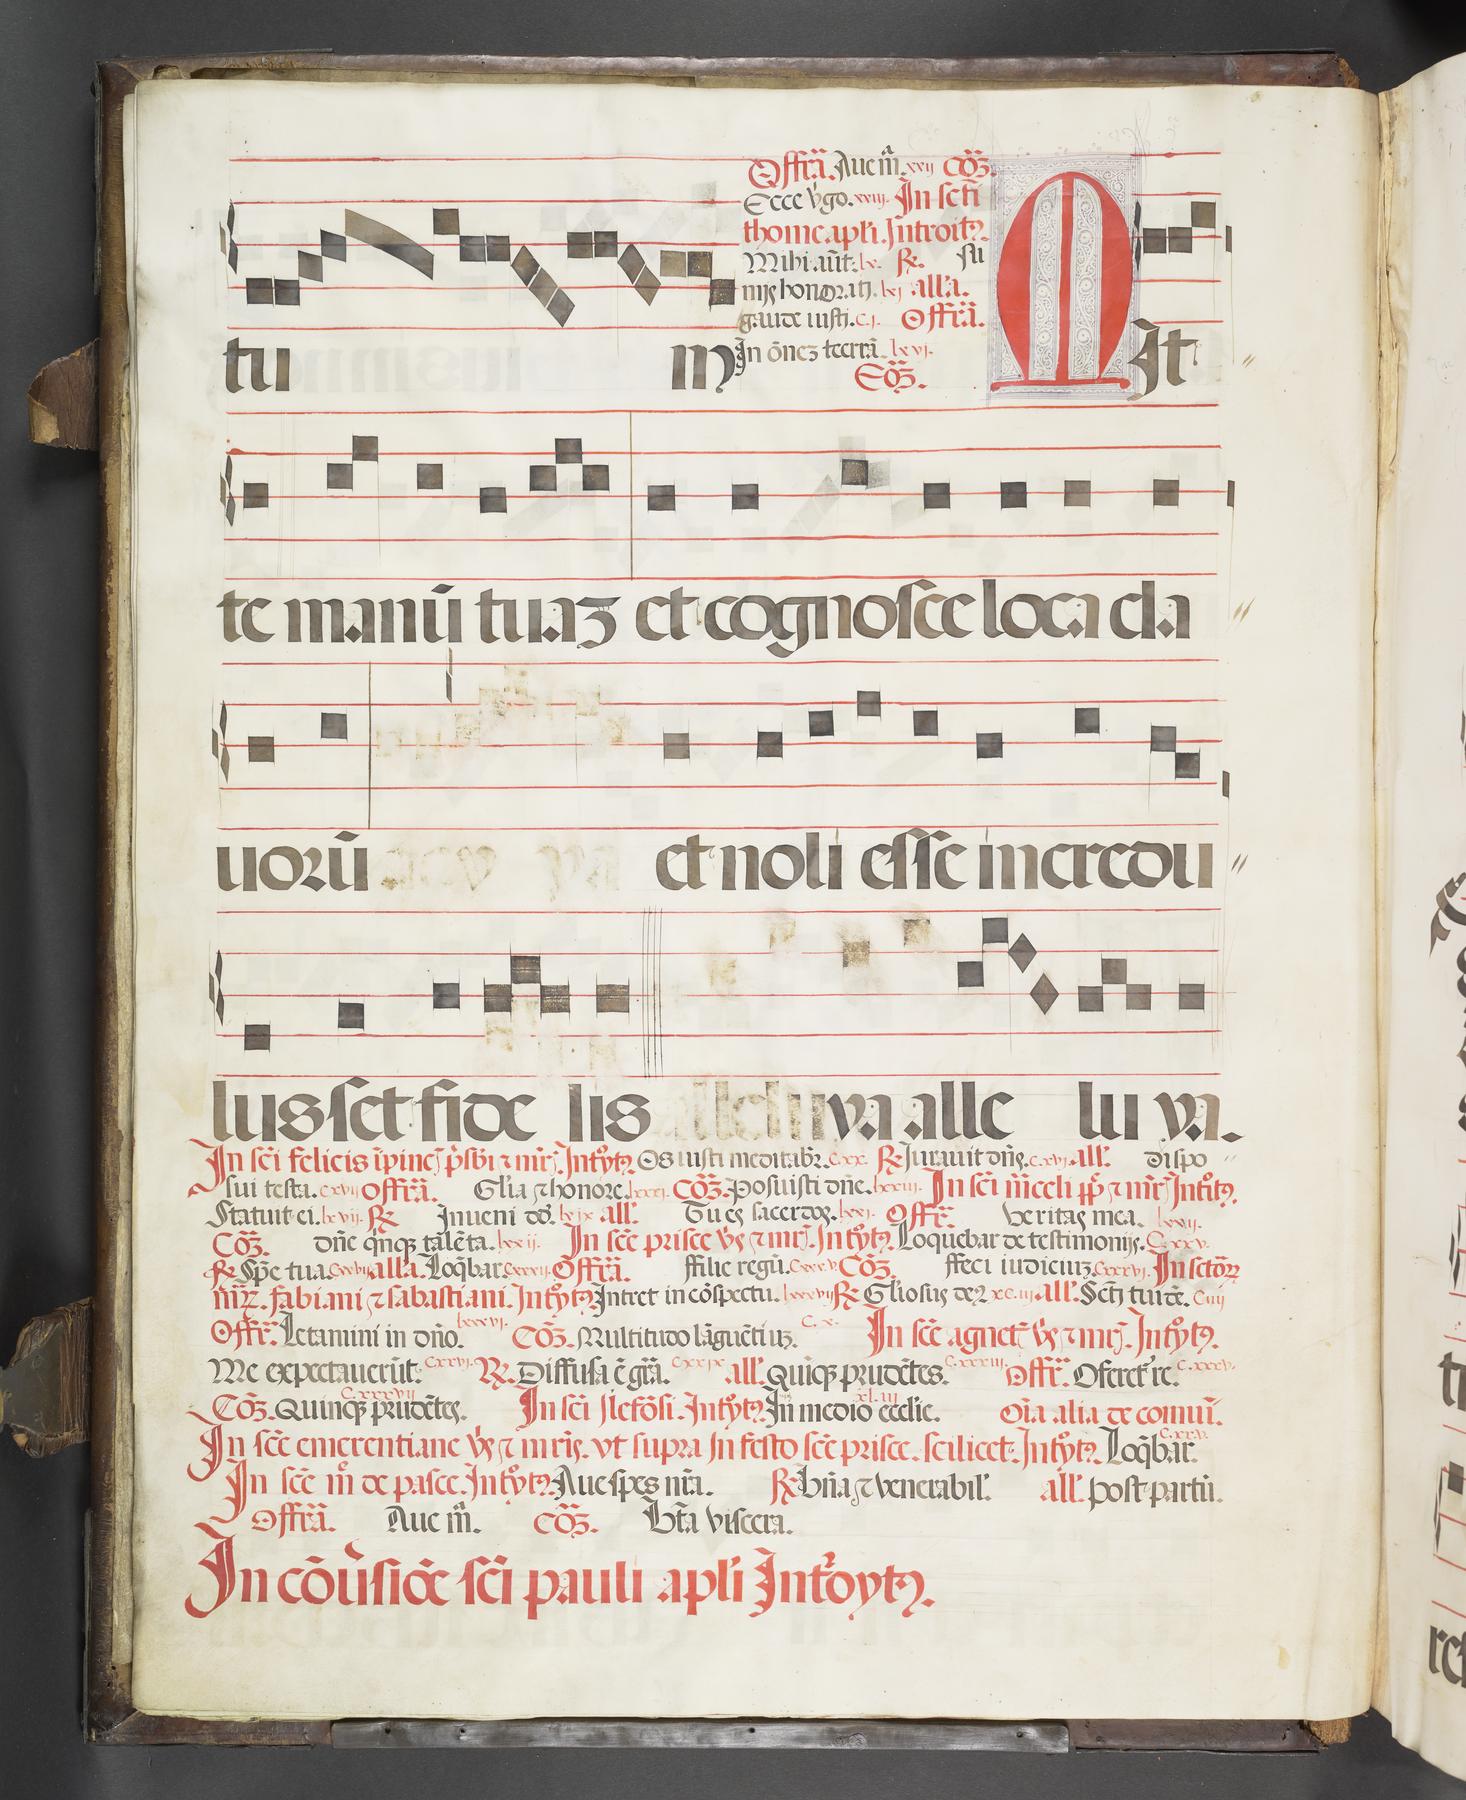 Offr̃a. Aue m̃. xxij Cõȝ.
Ecce v̓go. xxiij. In scti
thome apl̓i. Introitꝰ.
Mihi aũt. lx. ℟. su
nijs honorati. lxj all̓a.
gaude iusti. c.j. Offr̃a.
tu m In õnez terrã. lxvj.
Cõȝ. MIt
te manũ tuaȝ et cognosce loca cla
uorũ et noli esse incredu
lus set fide lis alleluya alle lu ya.
In sc̃i felicis ĩpincȷ p̃sbi ⁊ mr̃ȷ. Int̓oytꝰ Os iusti meditabr̃. cxx. ℟ Jurauit dñs. c.xvi. all̓. dispo
sui testa. cxvij Offr̃a. Gl̓ia ⁊ honore. lxxxj. Cõȝ. Posuisti dñe. lxxiii. In sc̃i m̃celi pp̃ ⁊ mr̃ȷ Int̓oitꝰ.
Statuit ei. lxvij. ℟ Inueni dd̓. lxix all̓. Tu es sacerdos. lxxj. Offr̃. Veritas mea. lxxij.
Cõȝ. dñe q̓nqȝ talẽta. lxxij. In sc̃e prisce v̓gȷ ⁊ mr̃ȷ. Int̓oytꝰ. Loquebar de testimonijs. C.xxv.
℟ Spẽ tua. Cxxvij all̓a. Loq̃bar. Cxxxij. Offr̃a. ffilie regũ. Cxxx.v Cõȝ. ffeci iudiciuȝ. Cxxxvj. In sctõꝝ
m̃ꝝ. fabiani ⁊ sabastiani. Int̓oytꝰ. Intret in cõspectu. lxxxvij ℟ Gl̓iosus deꝰ xc.iij all̓. Scti tui dẽ. Ciiij
Offr̃. Letamini in dño. lxxxvj. Cõȝ. Multitudo lãguẽtiuȝ. C.x. In sc̃e agnet̃ v̓gȷ ⁊ mr̃ȷ. Int̓oytꝰ.
Me expectauerũt. Cxxvj. ℟. Diffusa ẽ gr̃a. Cxxix all̓. Quiqȝ prudẽtes. C.xxxiij. Offr̃. Oferet̃ re. C.xxxv.
Cõȝ. Quinqȝ prudẽtes. C.xxxvij In sc̃i Ilefõsi. Int̓oytꝰ. In medio eccl̓ie. xl.iij Oĩa alia de comuĩ.
In sc̃e emerentiane v̓gȷ ⁊ mr̃is. vt supra In festo sc̃e prisce. scilicet. Int̓oytꝰ. Loq̃bar. C.xxv.
In sc̃e m̃ de pasce. Int̓oytꝰ Aue spes nr̃a. ℟. bñia ⁊ venerabil̓. all̓. post partũ.
Offr̃a. Aue m̃. Cõȝ. Bt̃a viscera.
In cõũsiõe sc̃i pauli apl̓i Int̓oytꝰ.